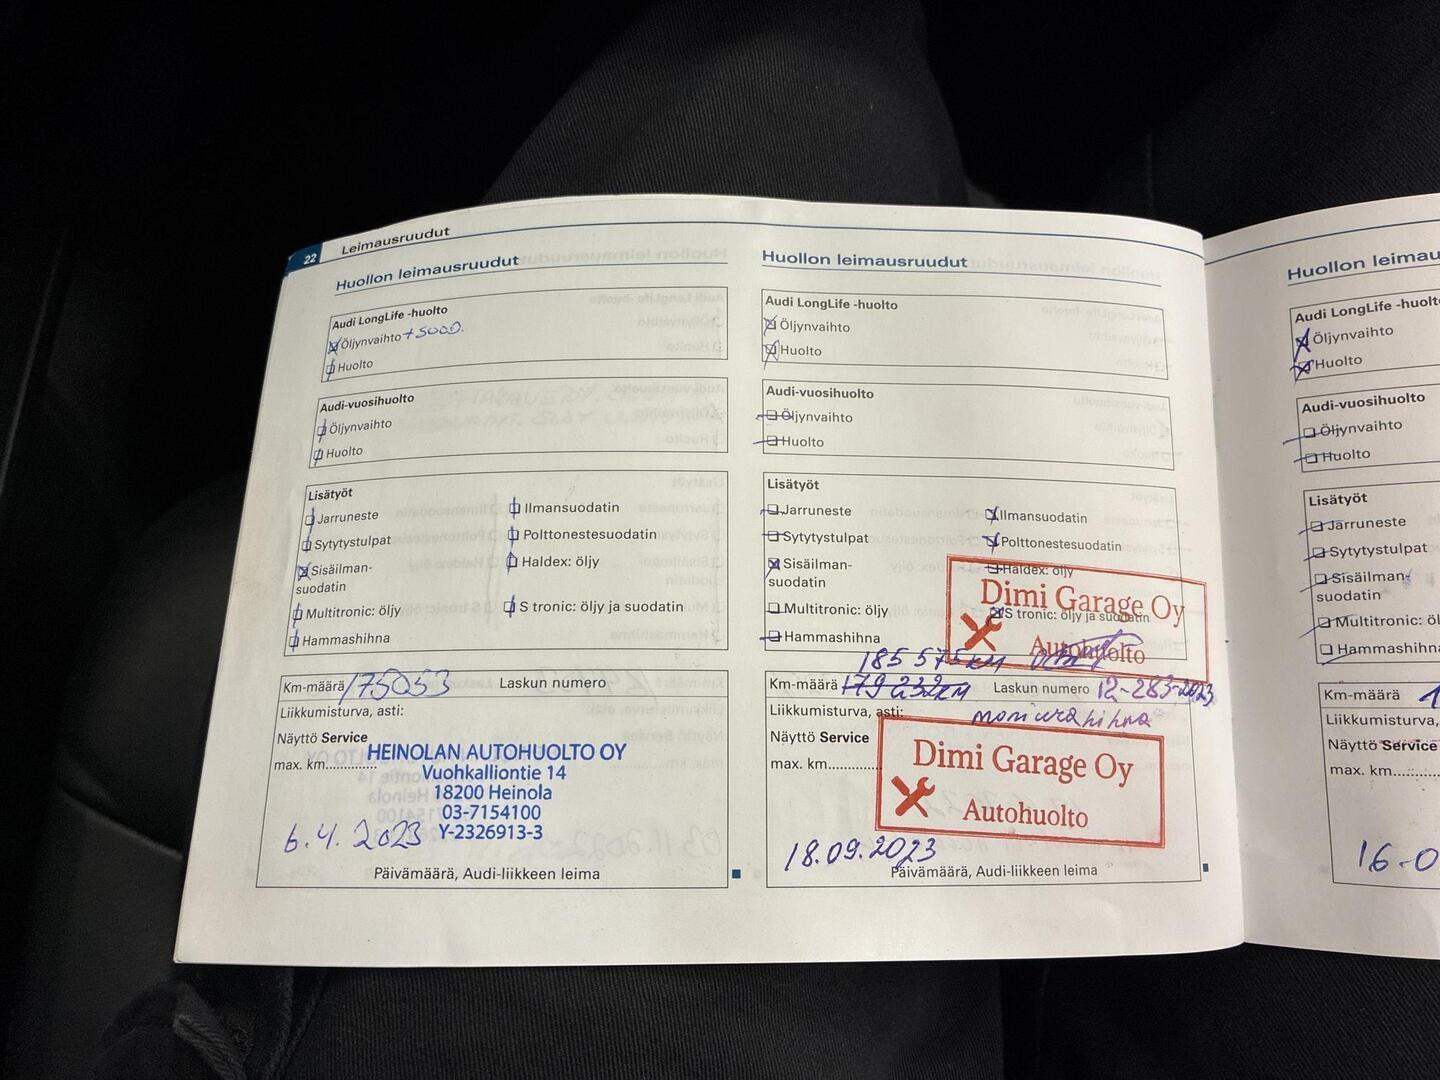 22 Leimausruudut
Huollon leimausruudut
Audi LongLife -huolto
Öljynvaihto + SUOD.
Huolto
Audi-vuosihuolto
Öljynvaihto
Huolto
Lisätyöt
Jarruneste
Sytytystulpat
Sisäilman-
suodatin
Multitronic: öljy
Hammashihna
Ilmansuodatin
Polttonestesuodatin
Haldex: öljy
S tronic: öljy ja suodatin
Km-määrä 175053 Laskun numero
Liikkumisturva, asti:
Näyttö Service
max. km............
HEINOLAN AUTOHUOLTO OY
Vuohkalliontie 14
18200 Heinola
03-7154100
Y-2326913-3
6.4.2023
Päivämäärä, Audi-liikkeen leima
Huollon leimausruudut
Audi LongLife -huolto
Öljynvaihto
Huolto
Audi-vuosihuolto
Öljynvaihto
Huolto
Lisätyöt
Jarruneste
Sytytystulpat
Sisäilman-
suodatin
Multitronic: öljy
Hammashihna
Ilmansuodatin
Polttonestesuodatin
Haldex: öljy
S tronic: öljy ja suodatin
Dimi Garage Oy
Autohuolto
185 575 KM
Km-määrä 179 232 KM Laskun numero 12-283-2023
Liikkumisturva, asti: moniurahihna
Näyttö Service
max. km............
Dimi Garage Oy
Autohuolto
18.09.2023
Päivämäärä, Audi-liikkeen leima
Huollon leimau
Audi LongLife -huolto
Öljynvaihto
Huolto
Audi-vuosihuolto
Öljynvaihto
Huolto
Lisätyöt
Jarruneste
Sytytystulpat
Sisäilman-
suodatin
Multitronic: öl
Hammashihna
Km-määrä 1
Liikkumisturva,
Näyttö Service
max. km............
16-0